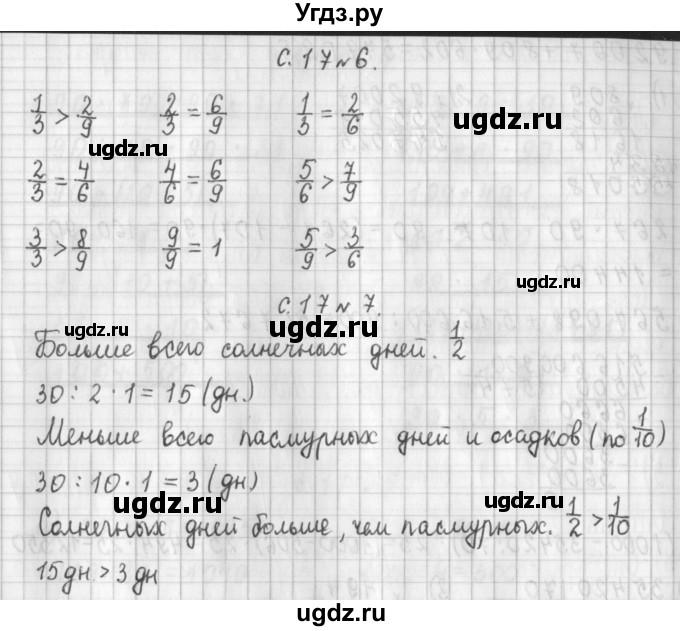 Угдз.ру
с. 17 № 6.
1/3 > 2/9 2/3 = 6/9 1/3 = 2/6
ugdz.ru
ugdz.ru
2/3 = 4/6 4/6 = 6/9 5/6 > 7/9
ugdz.ru
3/3 > 8/9 9/9 = 1 5/9 > 3/6
ugdz.ru
с. 17 № 7.
ugdz.ru
ugdz.ru
ugdz.ru
Больше всего солнечных дней. 1/2
30 : 2 · 1 = 15 (дн.)
ugdz.ru
Меньше всего пасмурных дней и осадков (по 1/10)
30 : 10 · 1 = 3 (дн)
ugdz.ru
ugdz.ru
Солнечных дней больше, чем пасмурных. 1/2 > 1/10
15 дн. > 3 дн
ugdz.ru
ugdz.ru